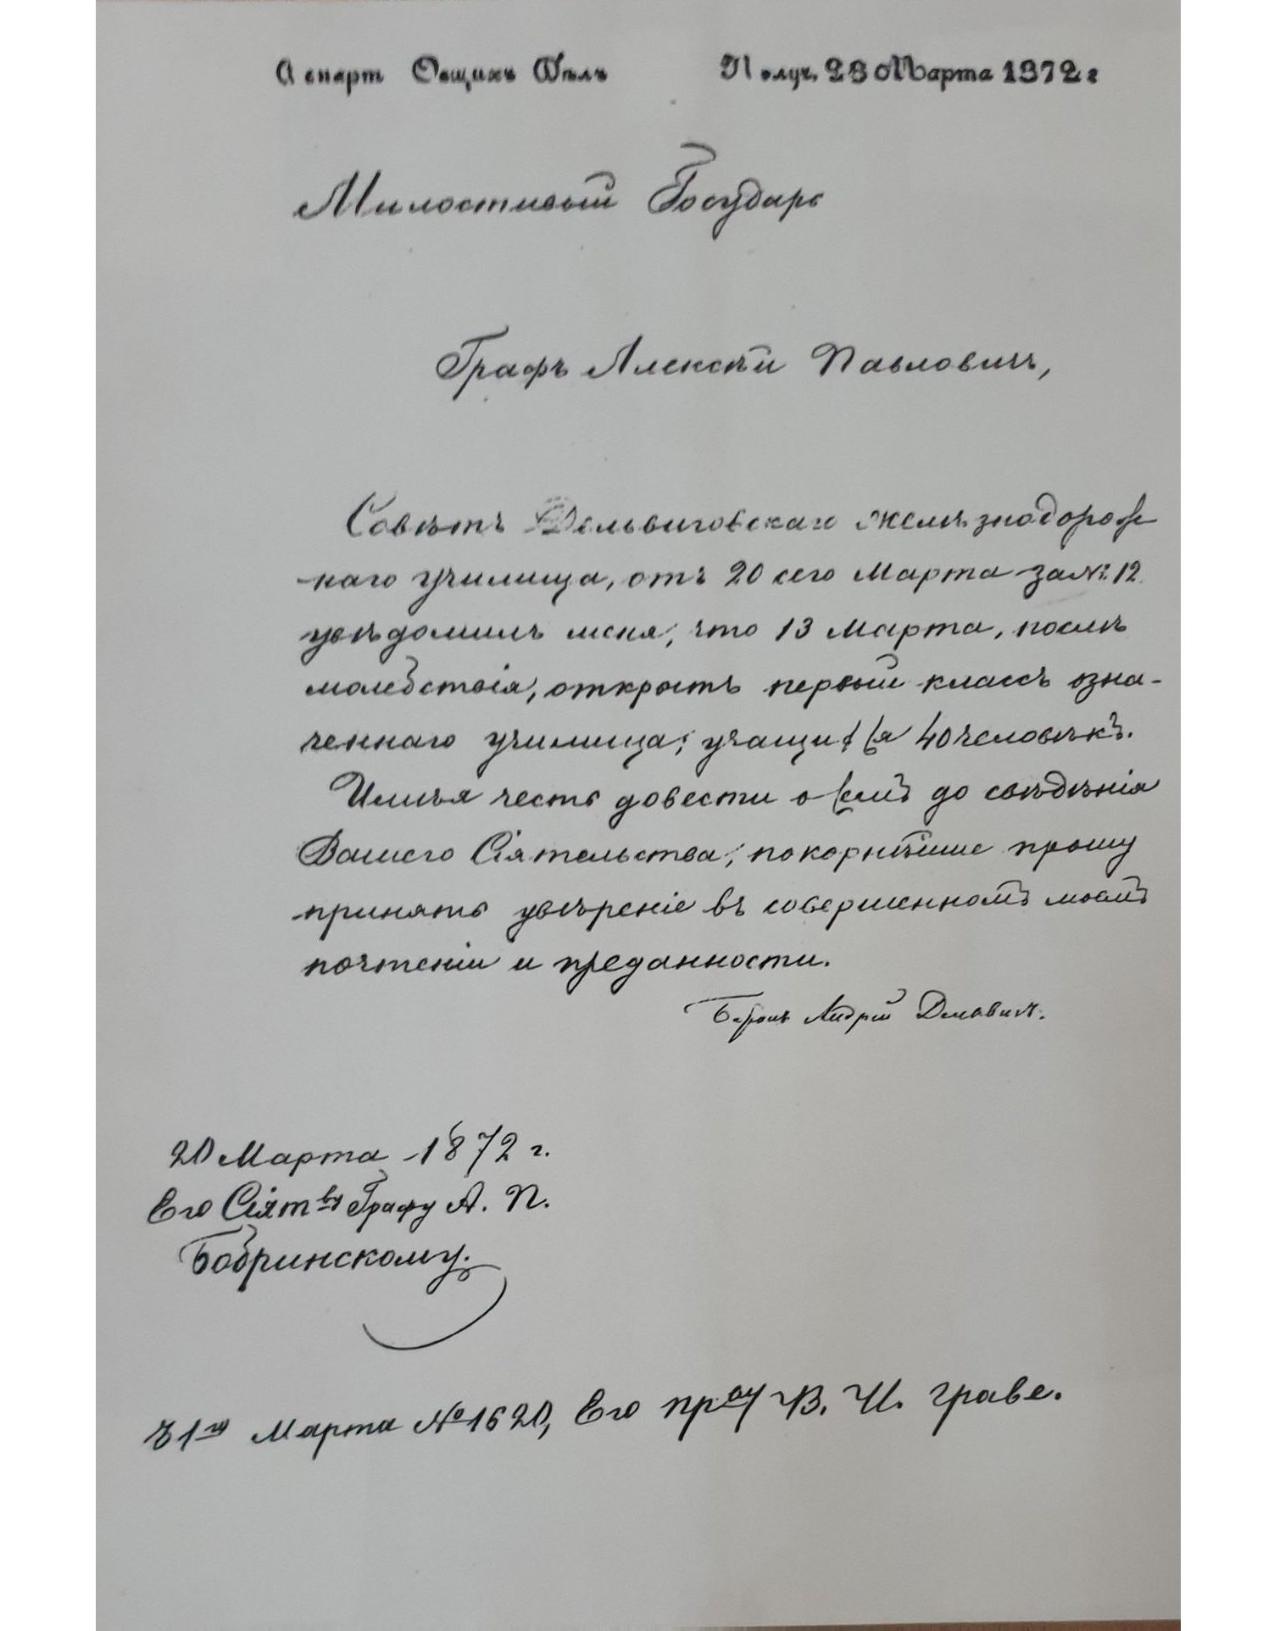 Департ Общихъ Дѣлъ Получ. 23 Марта 1872 г
Милостивый Государь
Графъ Алексѣй Павловичъ,
Совѣтъ Дельвиговскаго желѣзнодорож
-наго училища, отъ 20 сего Марта за № 12
увѣдомилъ меня, что 13 Марта, послѣ
молебствія, открытъ первый классъ озна-
ченнаго училища; учащихся 40 человѣкъ.
Имѣя честь довести о семъ до свѣдѣнія
Вашего Сіятельства, покорнѣйше прошу
принять увѣреніе въ совершенномъ моемъ
почтеніи и преданности.
Баронъ Андрей Дельвигъ.
20 Марта 1872 г.
Его Сіят ву Графу А. П.
Бобринскому.
Марта № 1620, Его пр ву В. И. Граве.